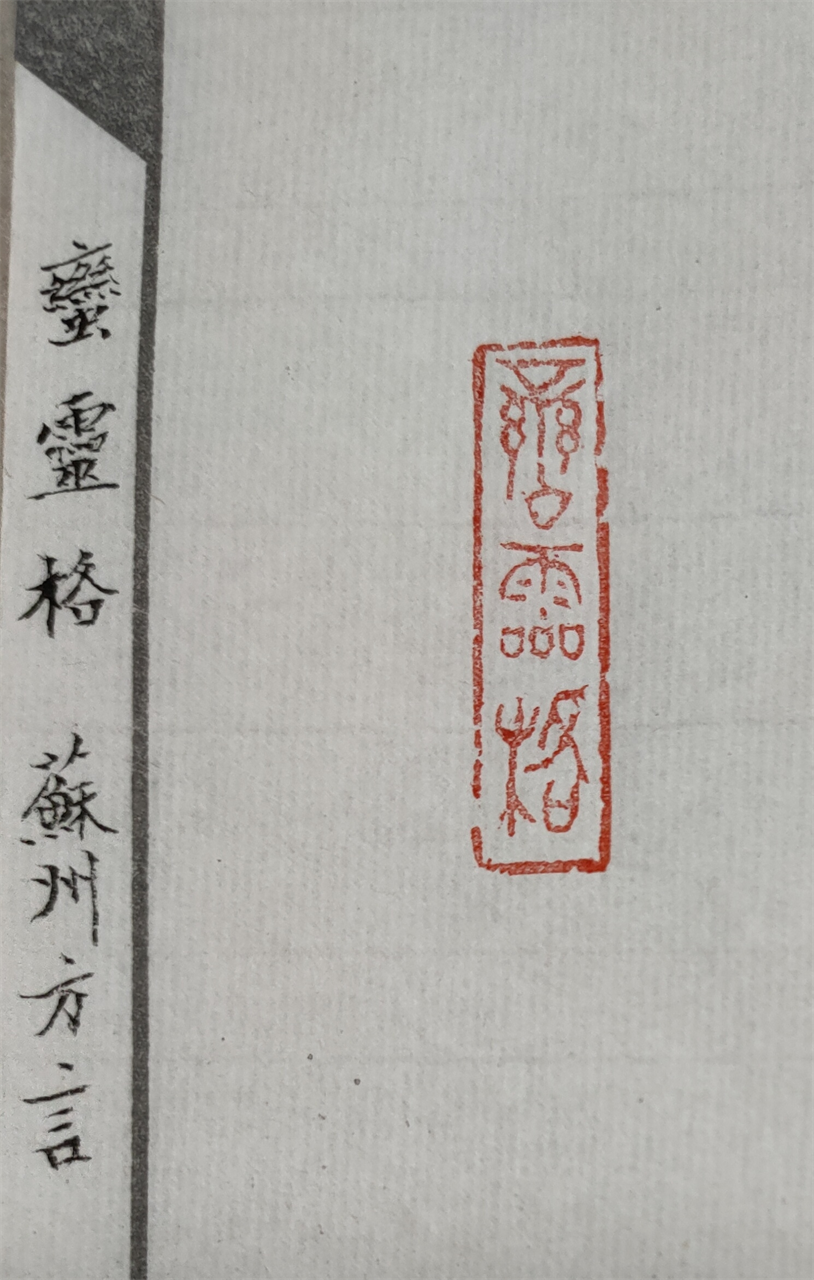 蠻靈格
蠻靈格 蘇州方言